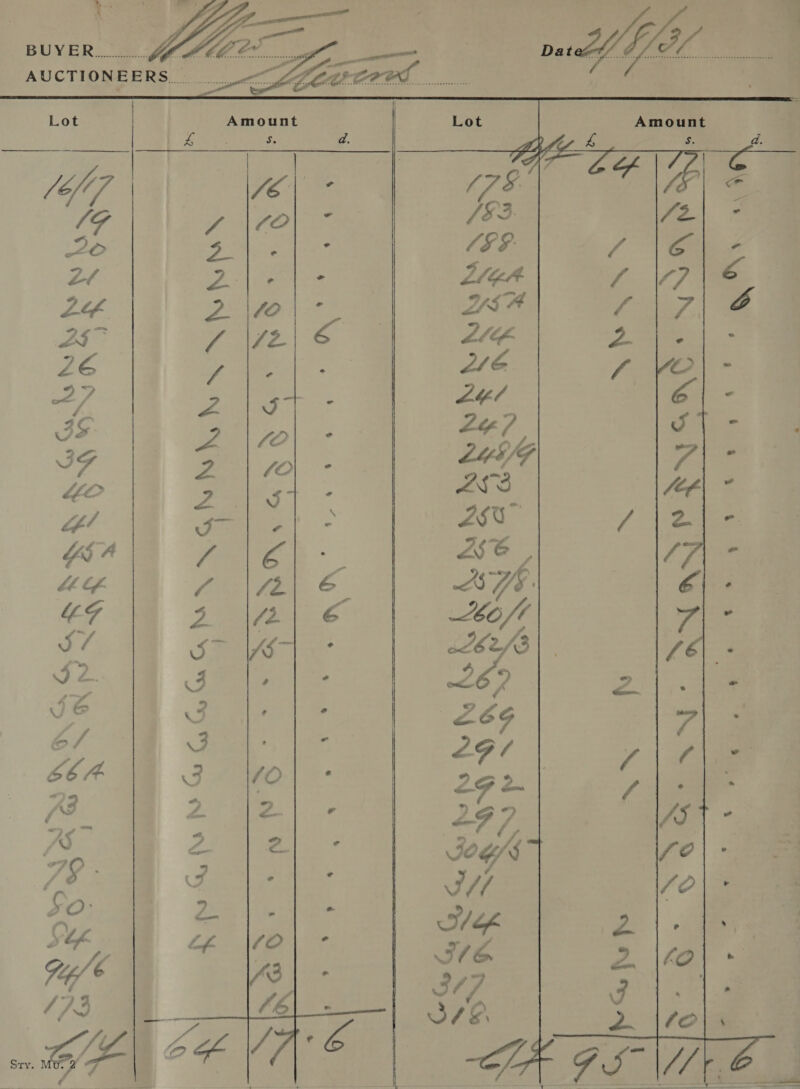 BUYER
Date 21/5/31
AUCTIONEERS
Lot Amount Lot Amount
£ s. d. £ s. d.
B/F 64 17 6
16/17 16 - 178 15 -
19 1 10 - 183 12 -
20 2 - - 188 1 6 -
21 2 - - 214A 1 17 6
24 2 10 - 215A 1 7 6
25 1 12 6 214 2 - -
26 1 - - 216 1 10 -
27 2 5 - 241 6 -
38 2 10 - 247 5 -
39 2 10 - 248/9 7 -
40 2 5 - 253 14 -
41 5 - - 255 1 2 -
45A 1 6 - 256 17 -
44 1 12 6 257/8 6 -
49 2 12 6 260/1 7 -
51 5 15 - 262/3 16 -
52 3 - - 267 2 - -
56 3 - - 269 7 -
61 3 - - 291 1 1 -
66A 3 10 - 292 1 - -
73 2 2 - 297 15 -
75 2 2 - 304/5 10 -
78 3 - - 311 10 -
80 2 - - 314 2 - -
84 4 10 - 316 2 10 -
94/6 13 - 317 3 - -
173 16 - 318 2 10 -
C/F 64 17 6 C/F 95 11 6